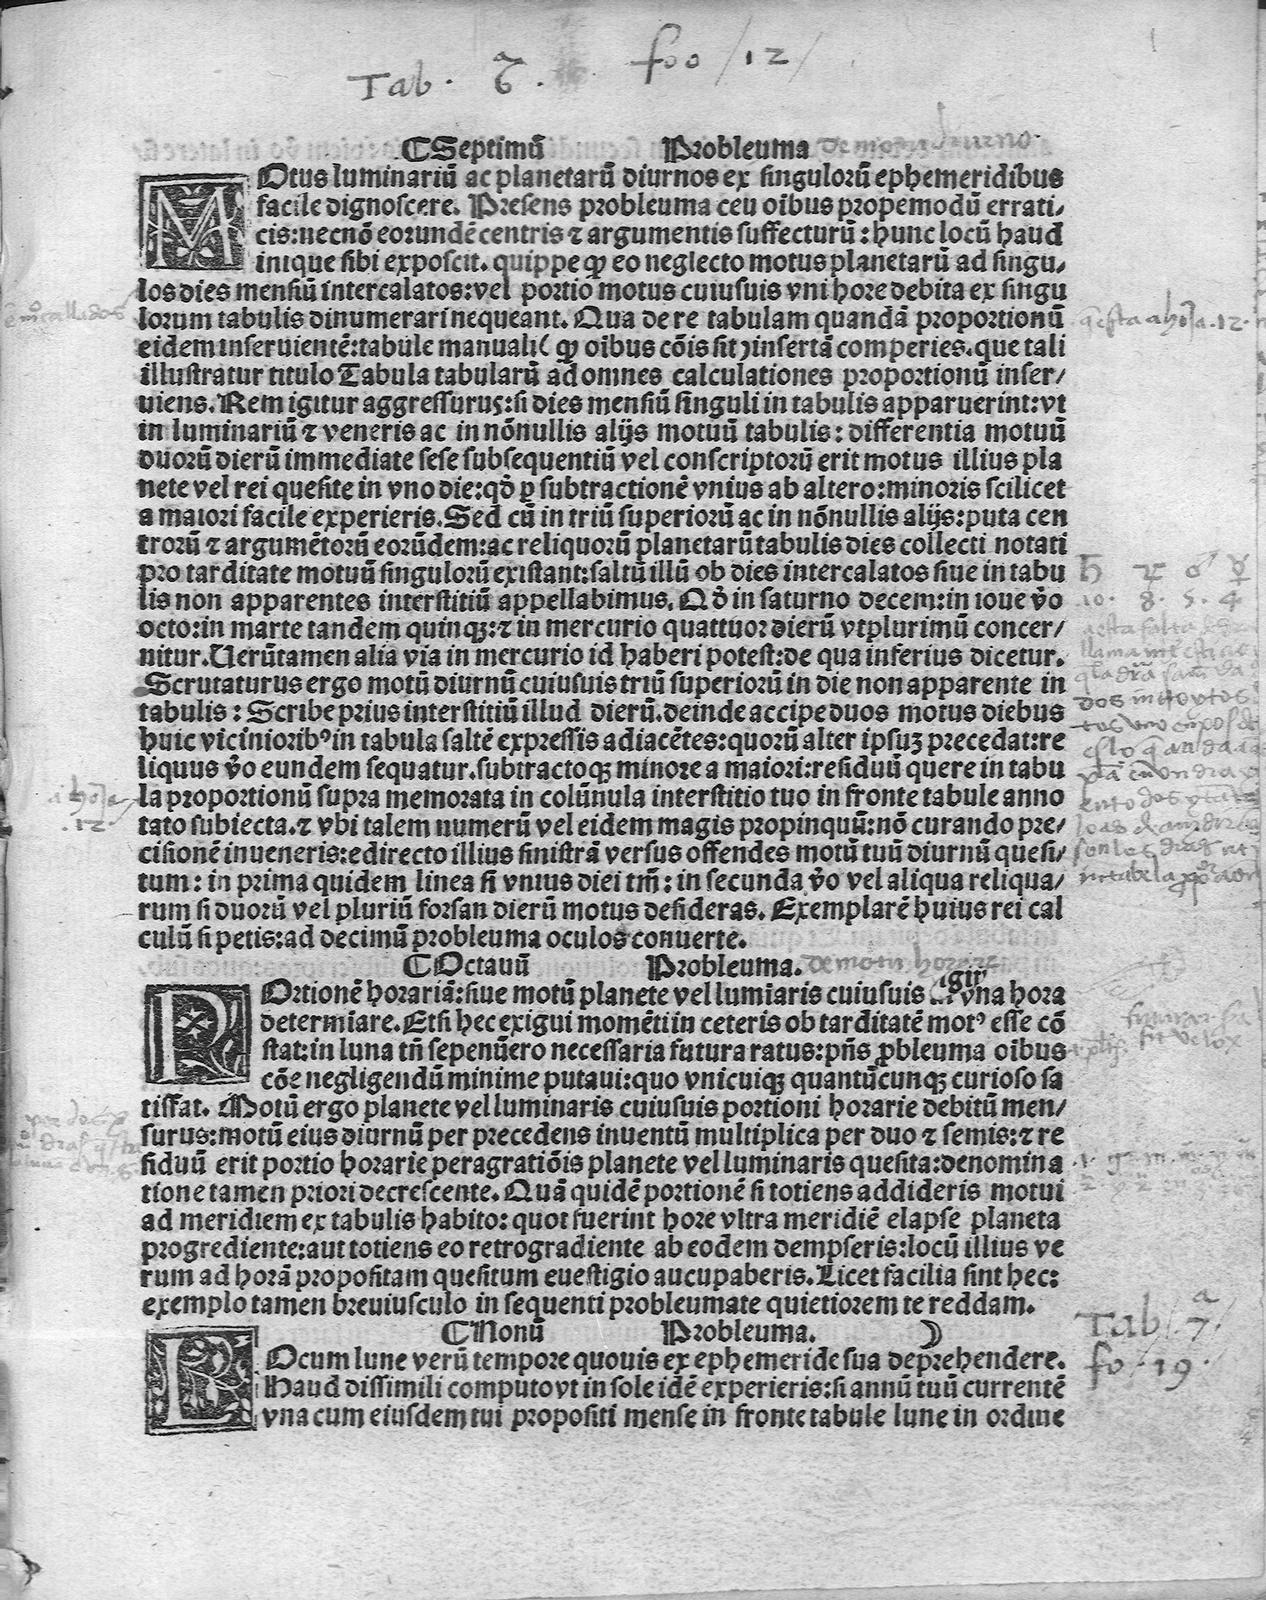 Tab. 6a. foo /12/
¶Septimũ Probleuma de motu diurno
MOtus luminariũ ac planetarũ diurnos ex singulorũ ephemeridibus
facile dignoscere. Presens probleuma ceu oibus propemodũ errati/
cis:necnõ eorundẽ centris ⁊ argumentis suffecturũ: hunc locũ haud
inique sibi exposcit. quippe ꝙ eo neglecto motus planetarũ ad singu/
los dies mensiũ intercalatos:vel portio motus cuiusuis vni hore debita ex singu
lorum tabulis dinumerari nequeant. Qua de re tabulam quandã proportionũ
eidem inseruientẽ:tabule manuali( ꝙ oibus cõis sit)insertã comperies. que tali
illustratur titulo Tabula tabularũ ad omnes calculationes proportionũ inser/
uiens. Rem igitur aggressurus:si dies mensiũ singuli in tabulis apparuerint:vt
in luminariũ ⁊ veneris ac in nõnullis alijs motuũ tabulis: differentia motuũ
duorũ dierũ immediate sese subsequentiũ vel conscriptorũ erit motus illius pla
nete vel rei quesite in vno die:qd̓ ꝑ subtractionẽ vnius ab altero:minoris scilicet
a maiori facile experieris. Sed cũ in triũ superiorũ ac in nõnullis alijs:puta cen
trorũ ⁊ argumẽtorũ eorũdem:ac reliquorũ planetarũ tabulis dies collecti notati
pro tarditate motuũ singulorũ existant:saltũ illũ ob dies intercalatos siue in tabu
lis non apparentes interstitiũ appellabimus. Qd̓ in saturno decem:in ioue v̓o
octo:in marte tandem quinqꝫ:⁊ in mercurio quattuor dierũ vtplurimũ concer/
nitur. Uerũtamen alia via in mercurio id haberi potest:de qua inferius dicetur.
Scrutaturus ergo motũ diurnũ cuiusuis triũ superiorũ in die non apparente in
tabulis: Scribe prius interstitiũ illud dierũ. deinde accipe duos motus diebus
huic vicinioribꝰ in tabula saltẽ expressis adiacẽtes:quorũ alter ipsuꝫ precedat:re
liquus v̓o eundem sequatur. subtractoqꝫ minore a maiori:residuũ quere in tabu
la proportionũ supra memorata in colũnula interstitio tuo in fronte tabule anno
tato subiecta. ⁊ vbi talem numerũ vel eidem magis propinquũ:nõ curando pre/
cisionẽ inueneris:edirecto illius sinistrã versus offendes motũ tuũ diurnũ quesi/
tum: in prima quidem linea si vnius diei tm̃: in secunda v̓o vel aliqua reliqua/
rum si duorũ vel pluriũ forsan dierũ motus desideras. Exemplarẽ huius rei cal
culũ si petis:ad decimũ probleuma oculos conuerte.
¶Octauũ Probleuma. de motu horare
POrtionẽ horariã:siue motũ planete vel lumiaris cuiusuis vna hora
determiare. Etsi hec exigui momẽti in ceteris ob tarditatẽ motꝰ esse cõ
stat:in luna tñ sepenũero necessaria futura ratus:pñs ꝓbleuma oibus
cõe negligendũ minime putaui:quo vnicuiqꝫ quantũcunqꝫ curioso sa
tisfat. Motũ ergo planete vel luminaris cuiusuis portioni horarie debitũ men/
surus:motũ eius diurnũ per precedens inuentũ multiplica per duo ⁊ semis:⁊ re
siduũ erit portio horarie peragratiõis planete vel luminaris quesita:denomina
tione tamen priori decrescente. Quã quidẽ portionẽ si totiens addideris motui
ad meridiem ex tabulis habito: quot fuerint hore vltra meridiẽ elapse planeta
progrediente:aut totiens eo retrogradiente ab eodem dempseris:locũ illius ve
rum ad horã propositam quesitum euestigio aucupaberis. Licet facilia sint hec:
exemplo tamen breuiusculo in sequenti probleumate quietiorem te reddam.
¶Nonũ Probleuma. ☽
LOcum lune verũ tempore quouis ex ephemeride sua deprehendere.
Haud dissimili computo vt in sole idẽ experieris:si annũ tuũ currentẽ
vna cum eiusdem tui propositi mense in fronte tabule lune in ordine
♄ ♃ ♂ ☿
10. 8. 5. 4
.12.
Tab. 7a/
fo. 19.